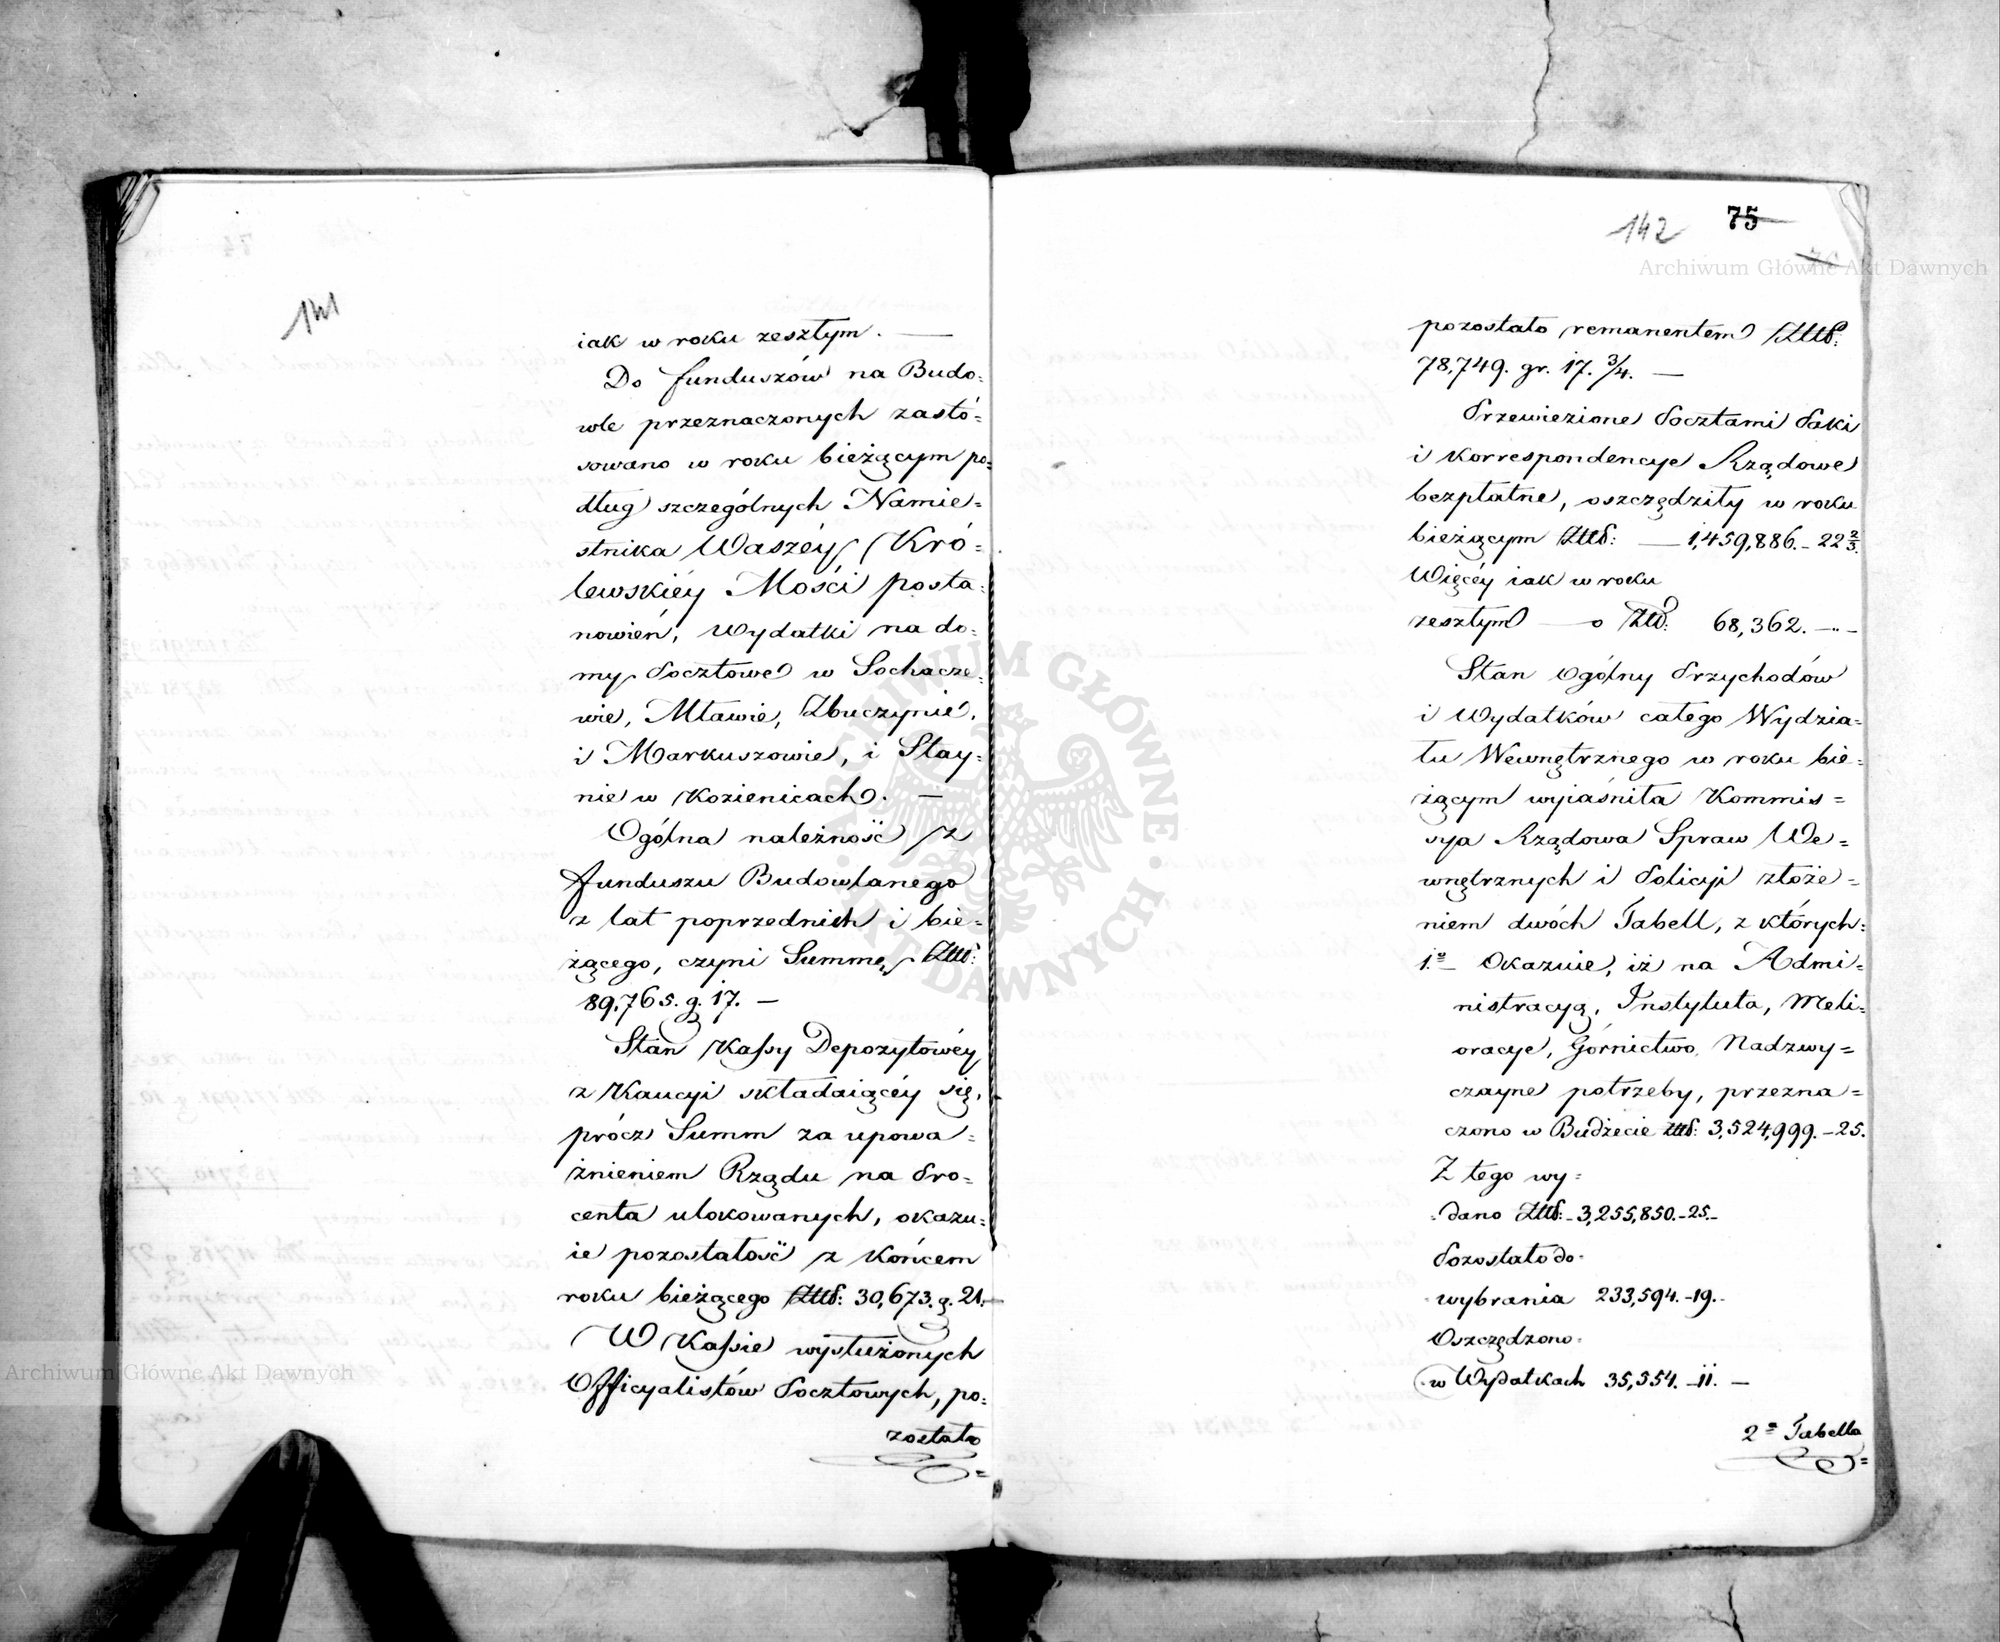 141
iak w roku zeszłym. —
Do funduszów na Budo=
wle przeznaczonych zastó=
sowano w roku bieżącym po=
dług szczególnych Namie=
stnika Waszéy Kró=
lewskiéy Mości posta=
nowień, Wydatki na do=
my Pocztowe w Sochacze=
wie, Mławie, Zbuczynie,
i Markuszowie, i Stay=
nie w Kozienicach. —
Ogólna należność z
funduszu Budowlanego
z lat poprzednich i bie=
żącego, czyni Summę Złłp:
89,765. g. 17. —
Stan Kassy Depozytowéy
z Kaucyi składaiącéy się,
prócz Summ za upowa=
żnieniem Rządu na Pro=
centa ulokowanych, okazu=
ie pozostałość z końcem
roku bieżącego Złłp: 30,673. g. 21.—
W Kassie wysłużonych
Officyalistów Pocztowych, po=
zostało
142 75
Archiwum Główne Akt Dawnych
pozostało remanentem Złłp:
78,749. gr. 17. 3/4. —
Przewiezione Pocztami Paki
i Korrespondencye Rządowe
bezpłatne, oszczędziły w roku
bieżącym Złłp: — 1,459,886.– 22 2/3.
Więcéy iak w roku
zeszłym — o Złp: 68,362. —..—
Stan Ogólny Przychodów
i Wydatków całego Wydzia=
łu Wewnętrznego w roku bie=
żącym wyiaśniła Kommis=
sya Rządowa Spraw We=
wnętrznych i Policyi złoże=
niem dwóch Tabell, z których:
1.º Okazuie, iż na Admi=
nistracyą, Instytuta, Meli=
oracye, Górnictwo, Nadzwy=
czayne potrzeby, przezna=
czono w Budżecie Złłp: 3,524,999.–25.
Z tego wy=
dano Złłp:– 3,255,850.–25.–
Pozostało do
wybrania 233,594.–19.–
Oszczędzono
w Wydatkach 35,554.–11.—
2ª Tabella
ARCHIWUM GŁÓWNE AKT DAWNYCH
Archiwum Główne Akt Dawnych